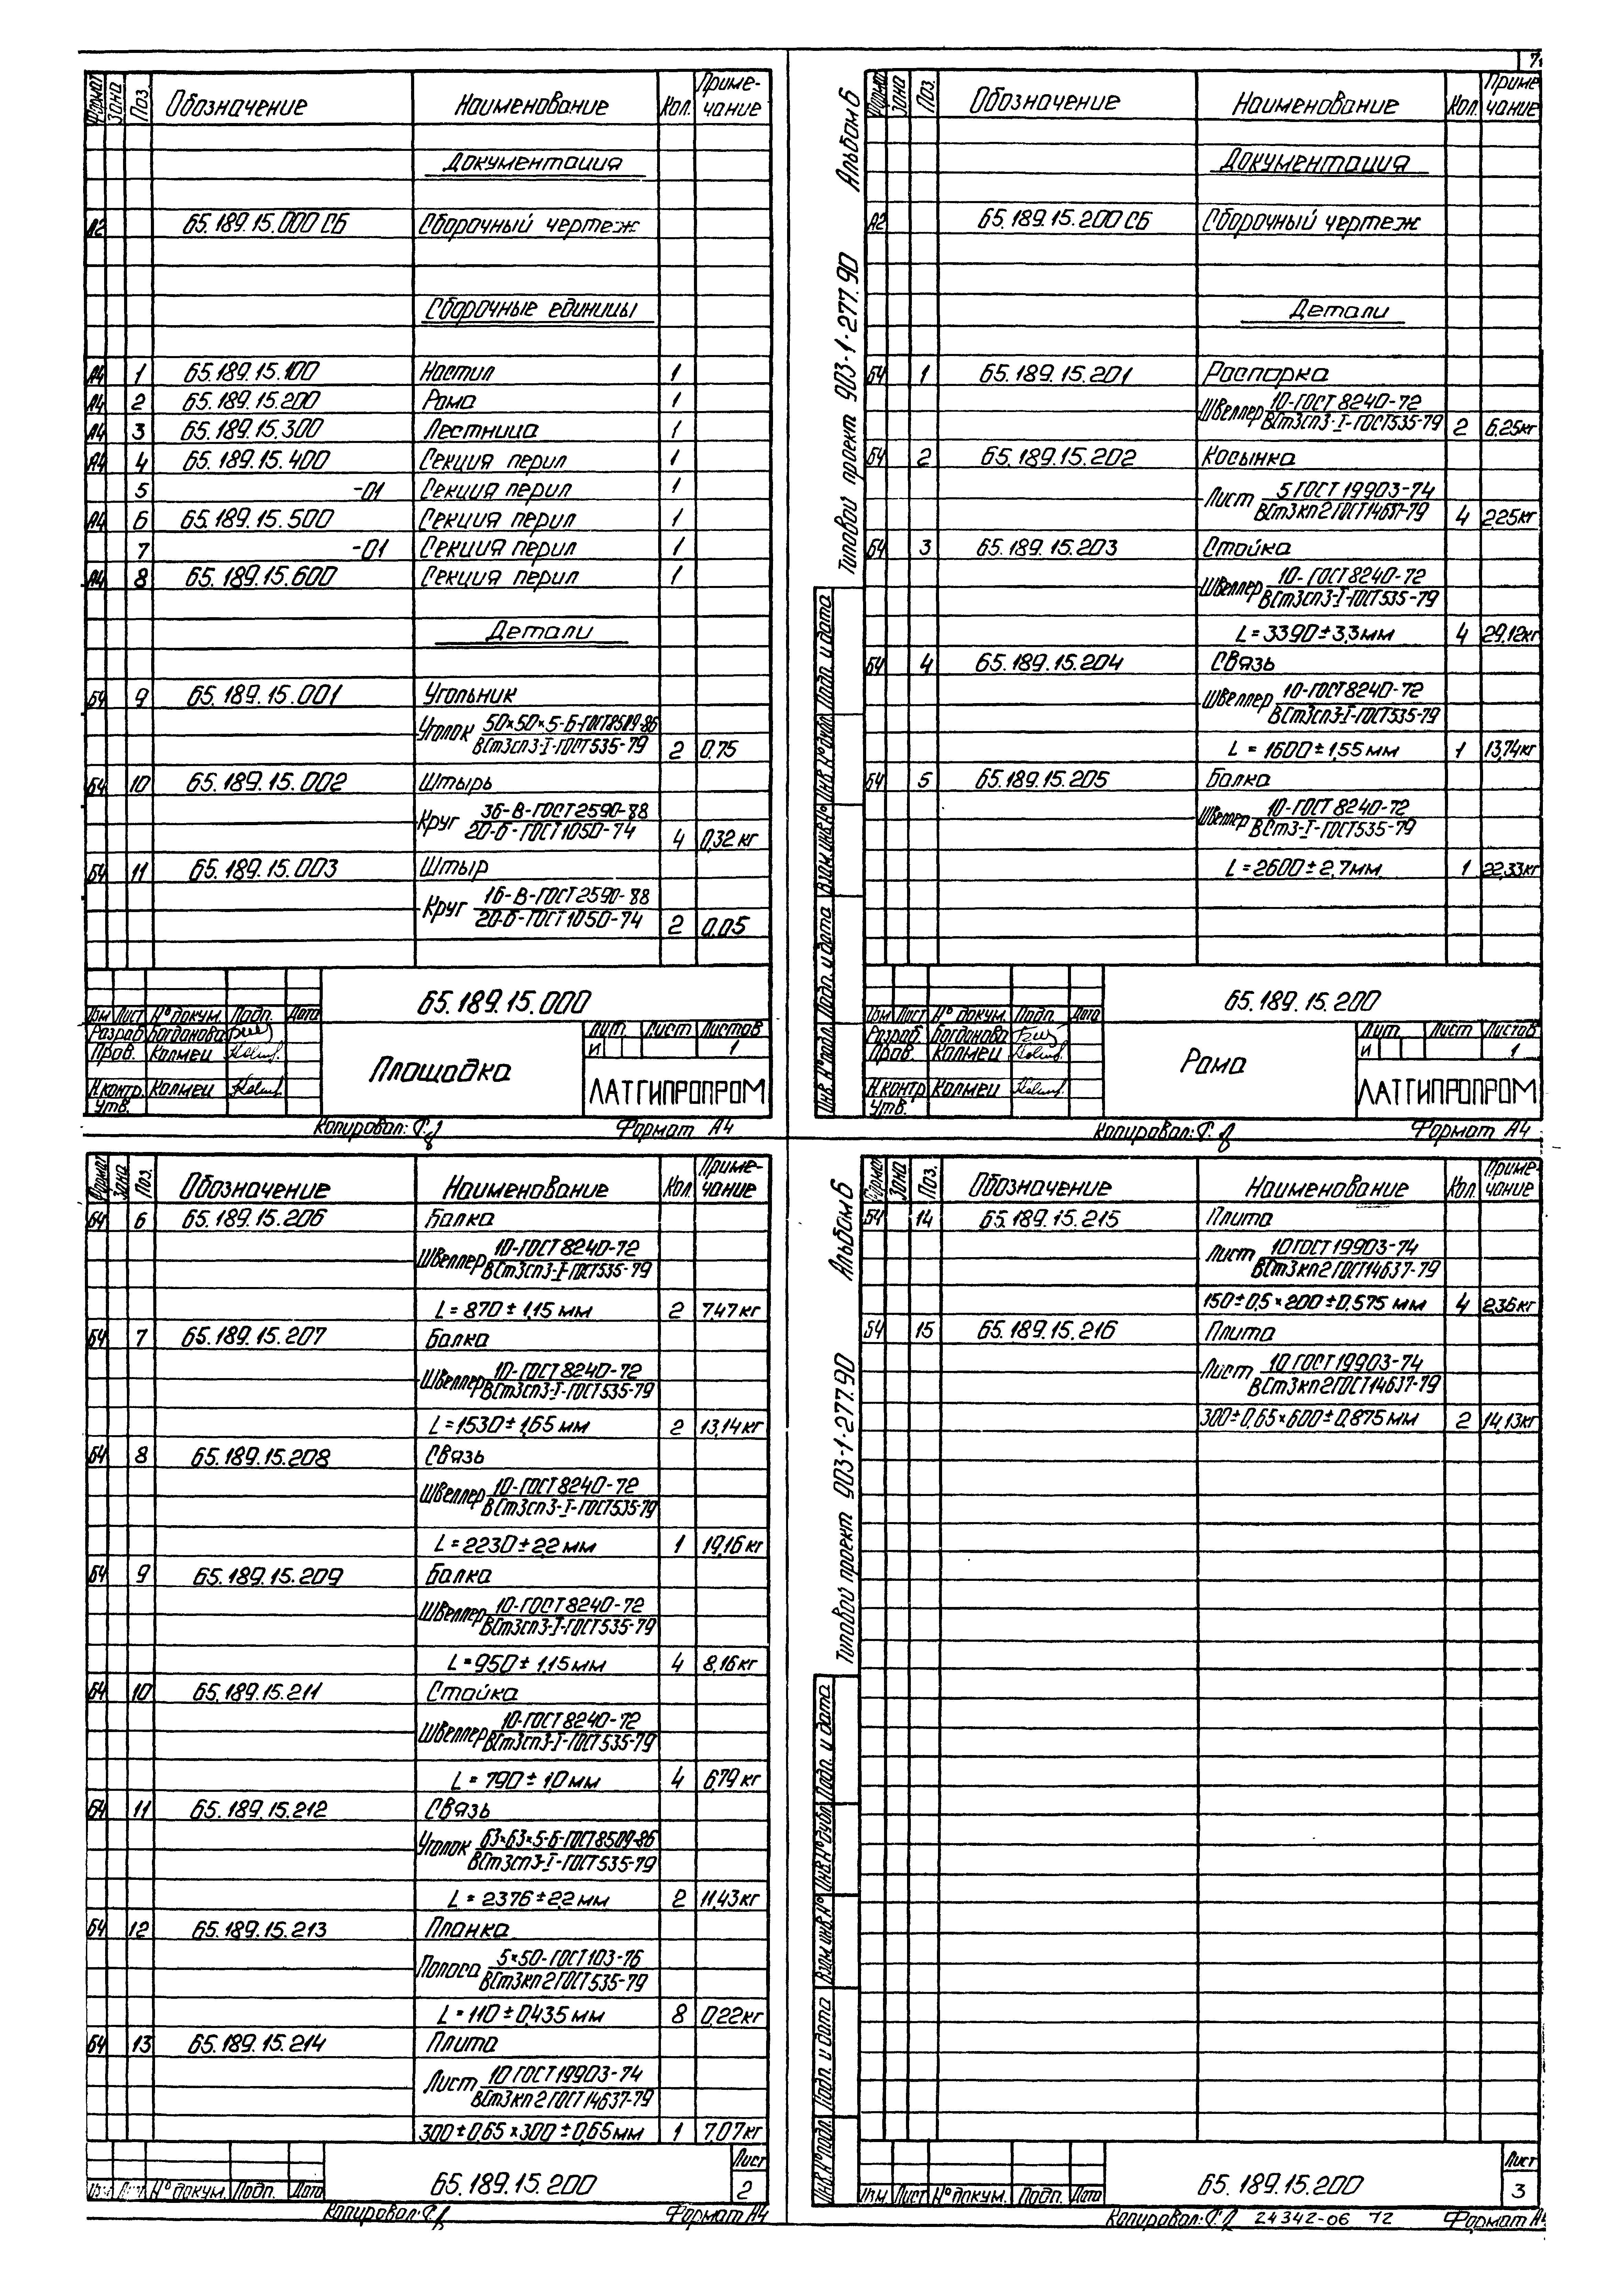 7.
Формат Зона Поз. Обозначение Наименование Кол. Приме-
чание
Документация
А2 65.189.15.000 СБ Сборочный чертеж
Сборочные единицы
А4 1 65.189.15.100 Настил 1
А4 2 65.189.15.200 Рама 1
А4 3 65.189.15.300 Лестница 1
А4 4 65.189.15.400 Секция перил 1
5 -01 Секция перил 1
А4 6 65.189.15.500 Секция перил 1
7 -01 Секция перил 1
А4 8 65.189.15.600 Секция перил 1
Детали
БЧ 9 65.189.15.001 Угольник
Уголок 50×50×5-Б-ГОСТ8509-86
ВСт3сп3-I-ГОСТ535-79 2 0,75
БЧ 10 65.189.15.002 Штырь
Круг 36-В-ГОСТ2590-88
20-б-ГОСТ1050-74 4 0,32 кг
БЧ 11 65.189.15.003 Штыр
Круг 16-В-ГОСТ2590-88
20-б-ГОСТ1050-74 2 0,05
65.189.15.000
Изм Лист № докум. Подп. Дата
Разраб. Богданова
Пров. Калмец
Н.контр. Калмец
Утв.
Площадка
Лит. Лист Листов
И 1
ЛАТГИПРОПРОМ
Копировал: Формат А4
Альбом 6
Типовой проект 903-1-277.90
Инв.№подл. Подп. и дата Взам.инв.№ Инв.№дубл. Подп. и дата
Формат Зона Поз. Обозначение Наименование Кол. Приме-
чание
Документация
А2 65.189.15.200 СБ Сборочный чертеж
Детали
БЧ 1 65.189.15.201 Распорка
Швеллер 10-ГОСТ 8240-72
ВСт3сп3-I-ГОСТ535-79 2 6,25кг
БЧ 2 65.189.15.202 Косынка
Лист 5 ГОСТ 19903-74
ВСт3кп2 ГОСТ14637-79 4 2,25кг
БЧ 3 65.189.15.203 Стойка
Швеллер 10-ГОСТ 8240-72
ВСт3сп3-I-ГОСТ535-79
L=3390±3,3мм 4 29,12кг
БЧ 4 65.189.15.204 Связь
Швеллер 10-ГОСТ 8240-72
ВСт3сп3-I-ГОСТ535-79
L = 1600±1,55 мм 1 13,74кг
БЧ 5 65.189.15.205 Балка
Швеллер 10-ГОСТ 8240-72
ВСт3-I-ГОСТ535-79
L=2600±2,7мм 1 22,33кг
65.189.15.200
Изм Лист № докум. Подп. Дата
Разраб. Богданова
Пров. Калмец
Н.контр Калмец
Утв.
Рама
Лит. Лист Листов
И 1
ЛАТГИПРОПРОМ
Копировал: Формат А4
Формат Зона Поз. Обозначение Наименование Кол. Приме-
чание
БЧ 6 65.189.15.206 Балка
Швеллер 10-ГОСТ 8240-72
ВСт3сп3-I-ГОСТ535-79
L=870±1,15 мм 2 7,47кг
БЧ 7 65.189.15.207 Балка
Швеллер 10-ГОСТ 8240-72
ВСт3сп3-I-ГОСТ535-79
L=1530±1,65 мм 2 13,14кг
БЧ 8 65.189.15.208 Связь
Швеллер 10-ГОСТ 8240-72
ВСт3сп3-I-ГОСТ535-79
L=2230±2,2 мм 1 19,16кг
БЧ 9 65.189.15.209 Балка
Швеллер 10-ГОСТ 8240-72
ВСт3сп3-I-ГОСТ535-79
L=950±1,15мм 4 8,16кг
БЧ 10 65.189.15.211 Стойка
Швеллер 10-ГОСТ 8240-72
ВСт3сп3-I-ГОСТ535-79
L=790±1,0мм 4 6,79кг
БЧ 11 65.189.15.212 Связь
Уголок 63×63×5-Б-ГОСТ8509-86
ВСт3сп3-I-ГОСТ535-79
L=2376±2,2мм 2 11,43кг
БЧ 12 65.189.15.213 Планка
Полоса 5×50-ГОСТ103-76
ВСт3кп2 ГОСТ535-79
L=110±0,435мм 8 0,22кг
БЧ 13 65.189.15.214 Плита
Лист 10 ГОСТ19903-74
ВСт3кп2 ГОСТ14637-79
300±0,65×300±0,65мм 1 7,07кг
Изм Лист № докум. Подп. Дата
65.189.15.200
Лист
2
Копировал: Формат А4
Альбом 6
Типовой проект 903-1-277.90
Инв.№подл. Подп. и дата Взам.инв.№ Инв.№дубл. Подп. и дата
Формат Зона Поз. Обозначение Наименование Кол. Приме-
чание
БЧ 14 65.189.15.215 Плита
Лист 10ГОСТ19903-74
ВСт3кп2 ГОСТ14637-79
150±0,5×200±0,575 мм 4 2,36кг
БЧ 15 65.189.15.216 Плита
Лист 10 ГОСТ19903-74
ВСт3кп2ГОСТ14637-79
300±0,65×600±0,875мм 2 14,13кг
Изм Лист № докум. Подп. Дата
65.189.15.200
Лист
3
Копировал: 24342-06 12 Формат А4